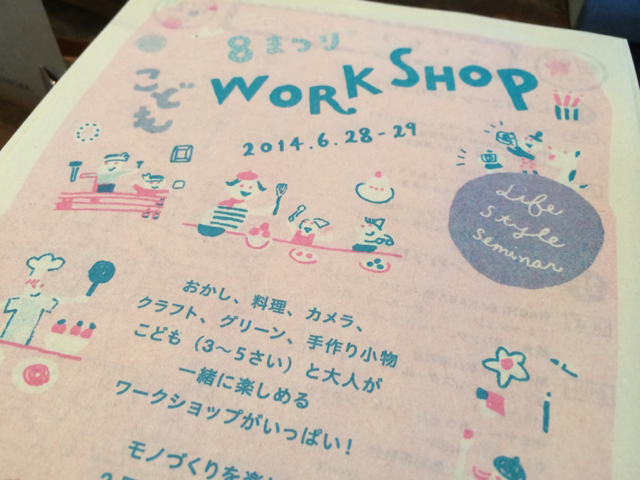 8まつり
こども
WORKSHOP
2014.6.28-29
Life
Style
Seminar
おかし、料理、カメラ、
クラフト、グリーン、手作り小物
こども（3〜5さい）と大人が
一緒に楽しめる
ワークショップがいっぱい！
モノづくりを楽